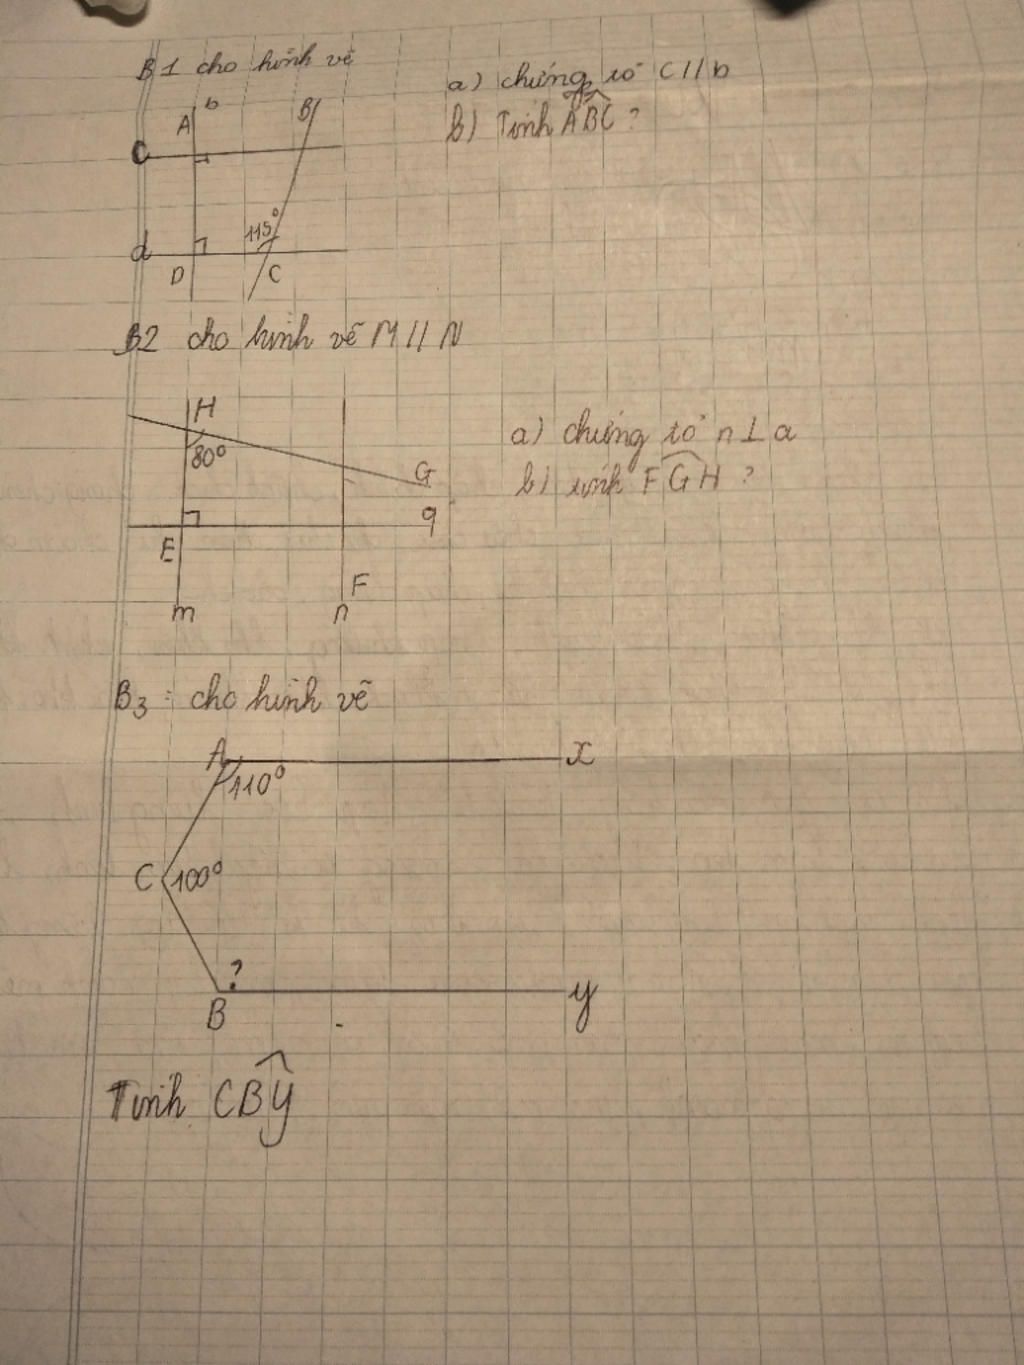 B1 cho hình vẽ
a) chứng tỏ C//b
b) Tính ABC ?
b
A
B
c
115°
d
D
C
B2 cho hình vẽ M//N
H
80°
G
q
E
F
m
n
a) chứng tỏ n⊥a
b) tính FGH ?
B3 : cho hình vẽ
A
x
110°
C
100°
?
B
y
Tính CBy